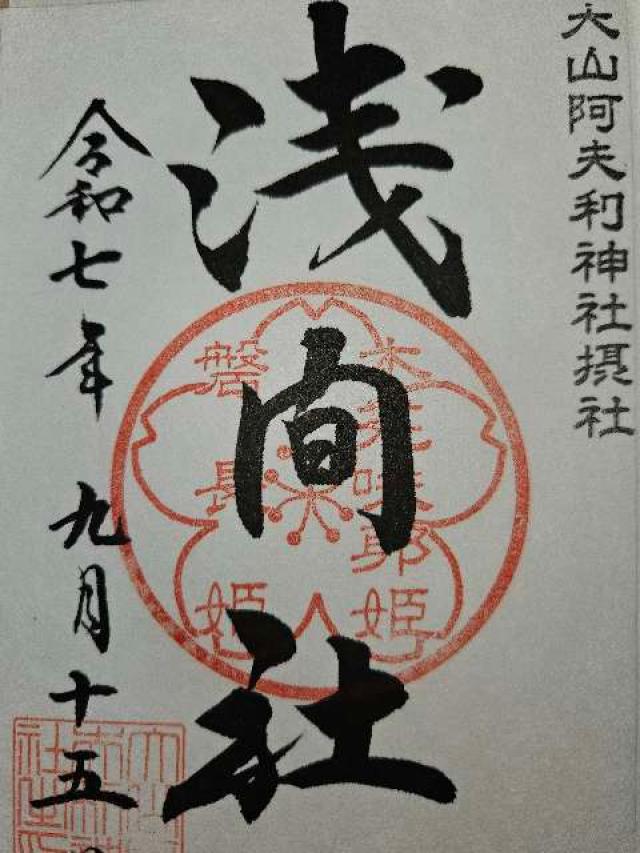 大山阿夫利神社摂社
浅間社
木花咲耶姫
磐長姫
令和七年 九月十五日